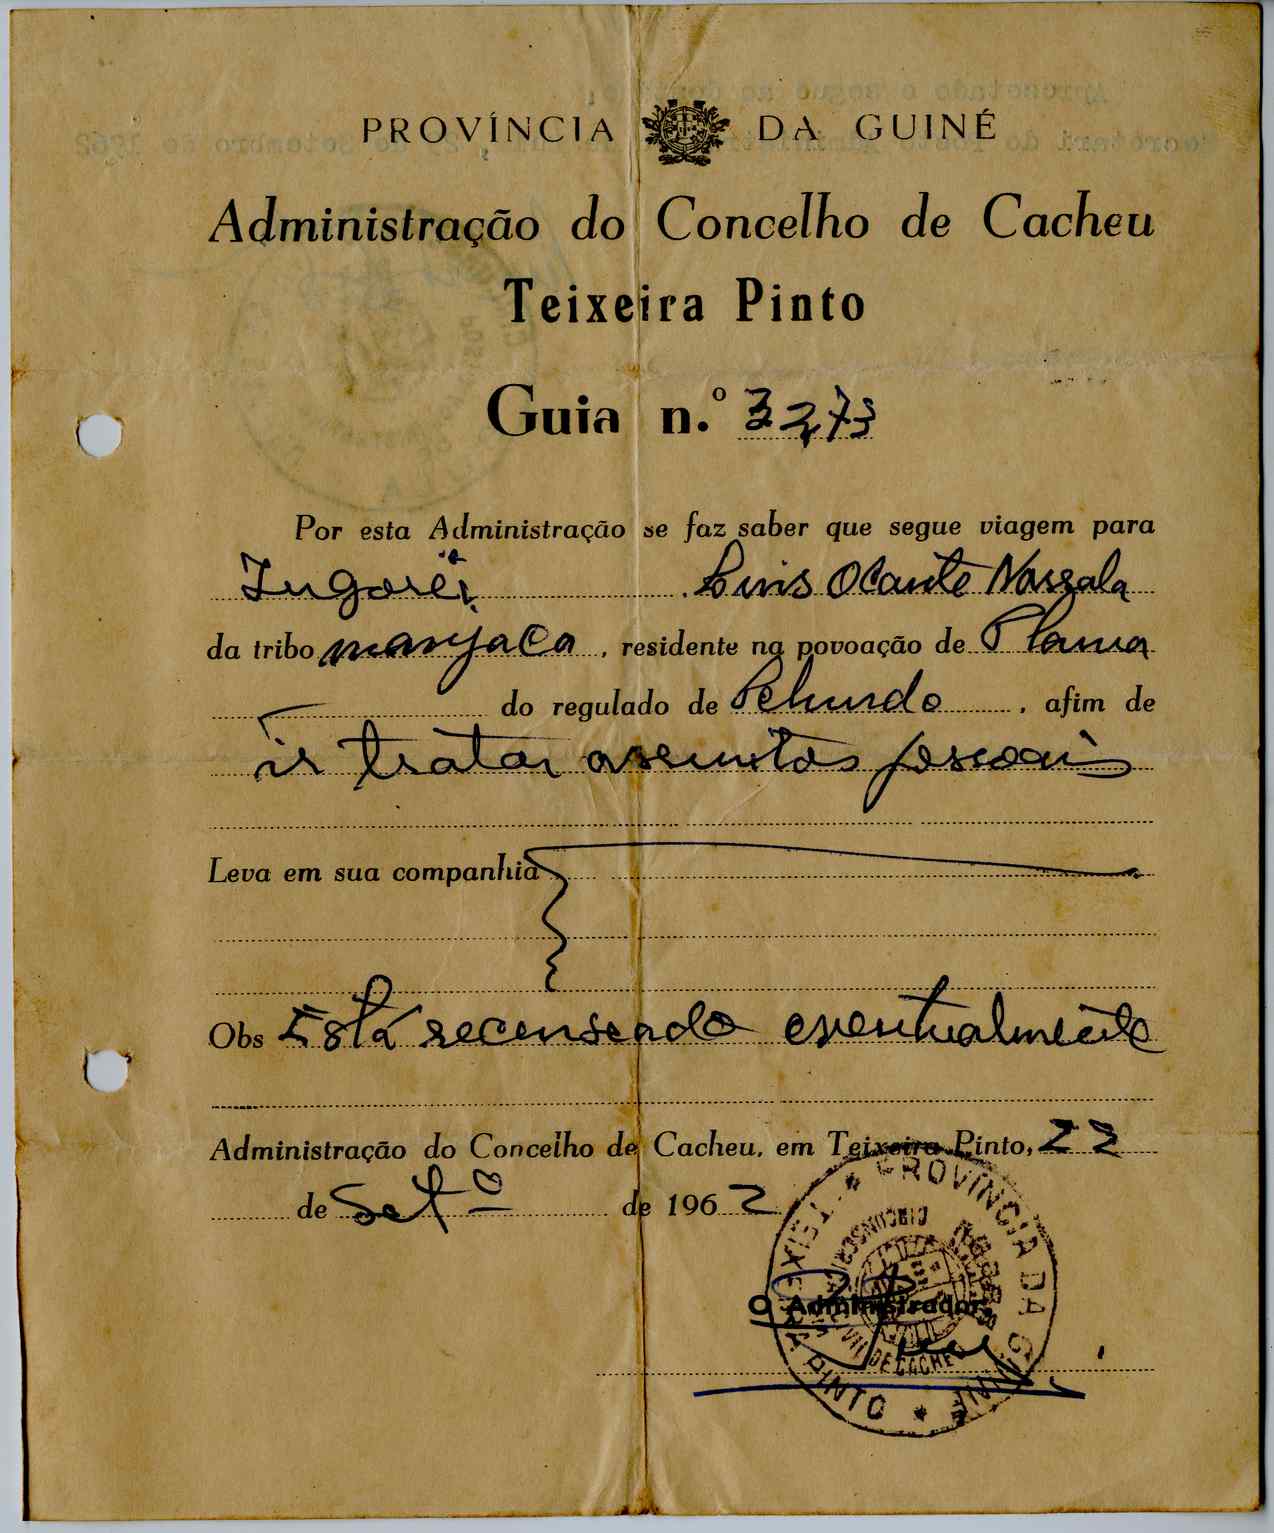 PROVÍNCIA DA GUINÉ
Administração do Concelho de Cacheu
Teixeira Pinto
Guia n.º 3273
Por esta Administração se faz saber que segue viagem para
Ingorei Luis Ocante Nassala
da tribo manjaca, residente na povoação de Plama
do regulado de Pelundo, afim de
ir tratar assuntos pessoais
Leva em sua companhia
Obs Está recenseado eventualmente
Administração do Concelho de Cacheu, em Teixeira Pinto, 22
de Setº de 1962
PROVÍNCIA DA GUINÉ
TEIXEIRA PINTO
CIRCUNSCRIÇÃO CIVIL DE CACHEU
O Administrador,